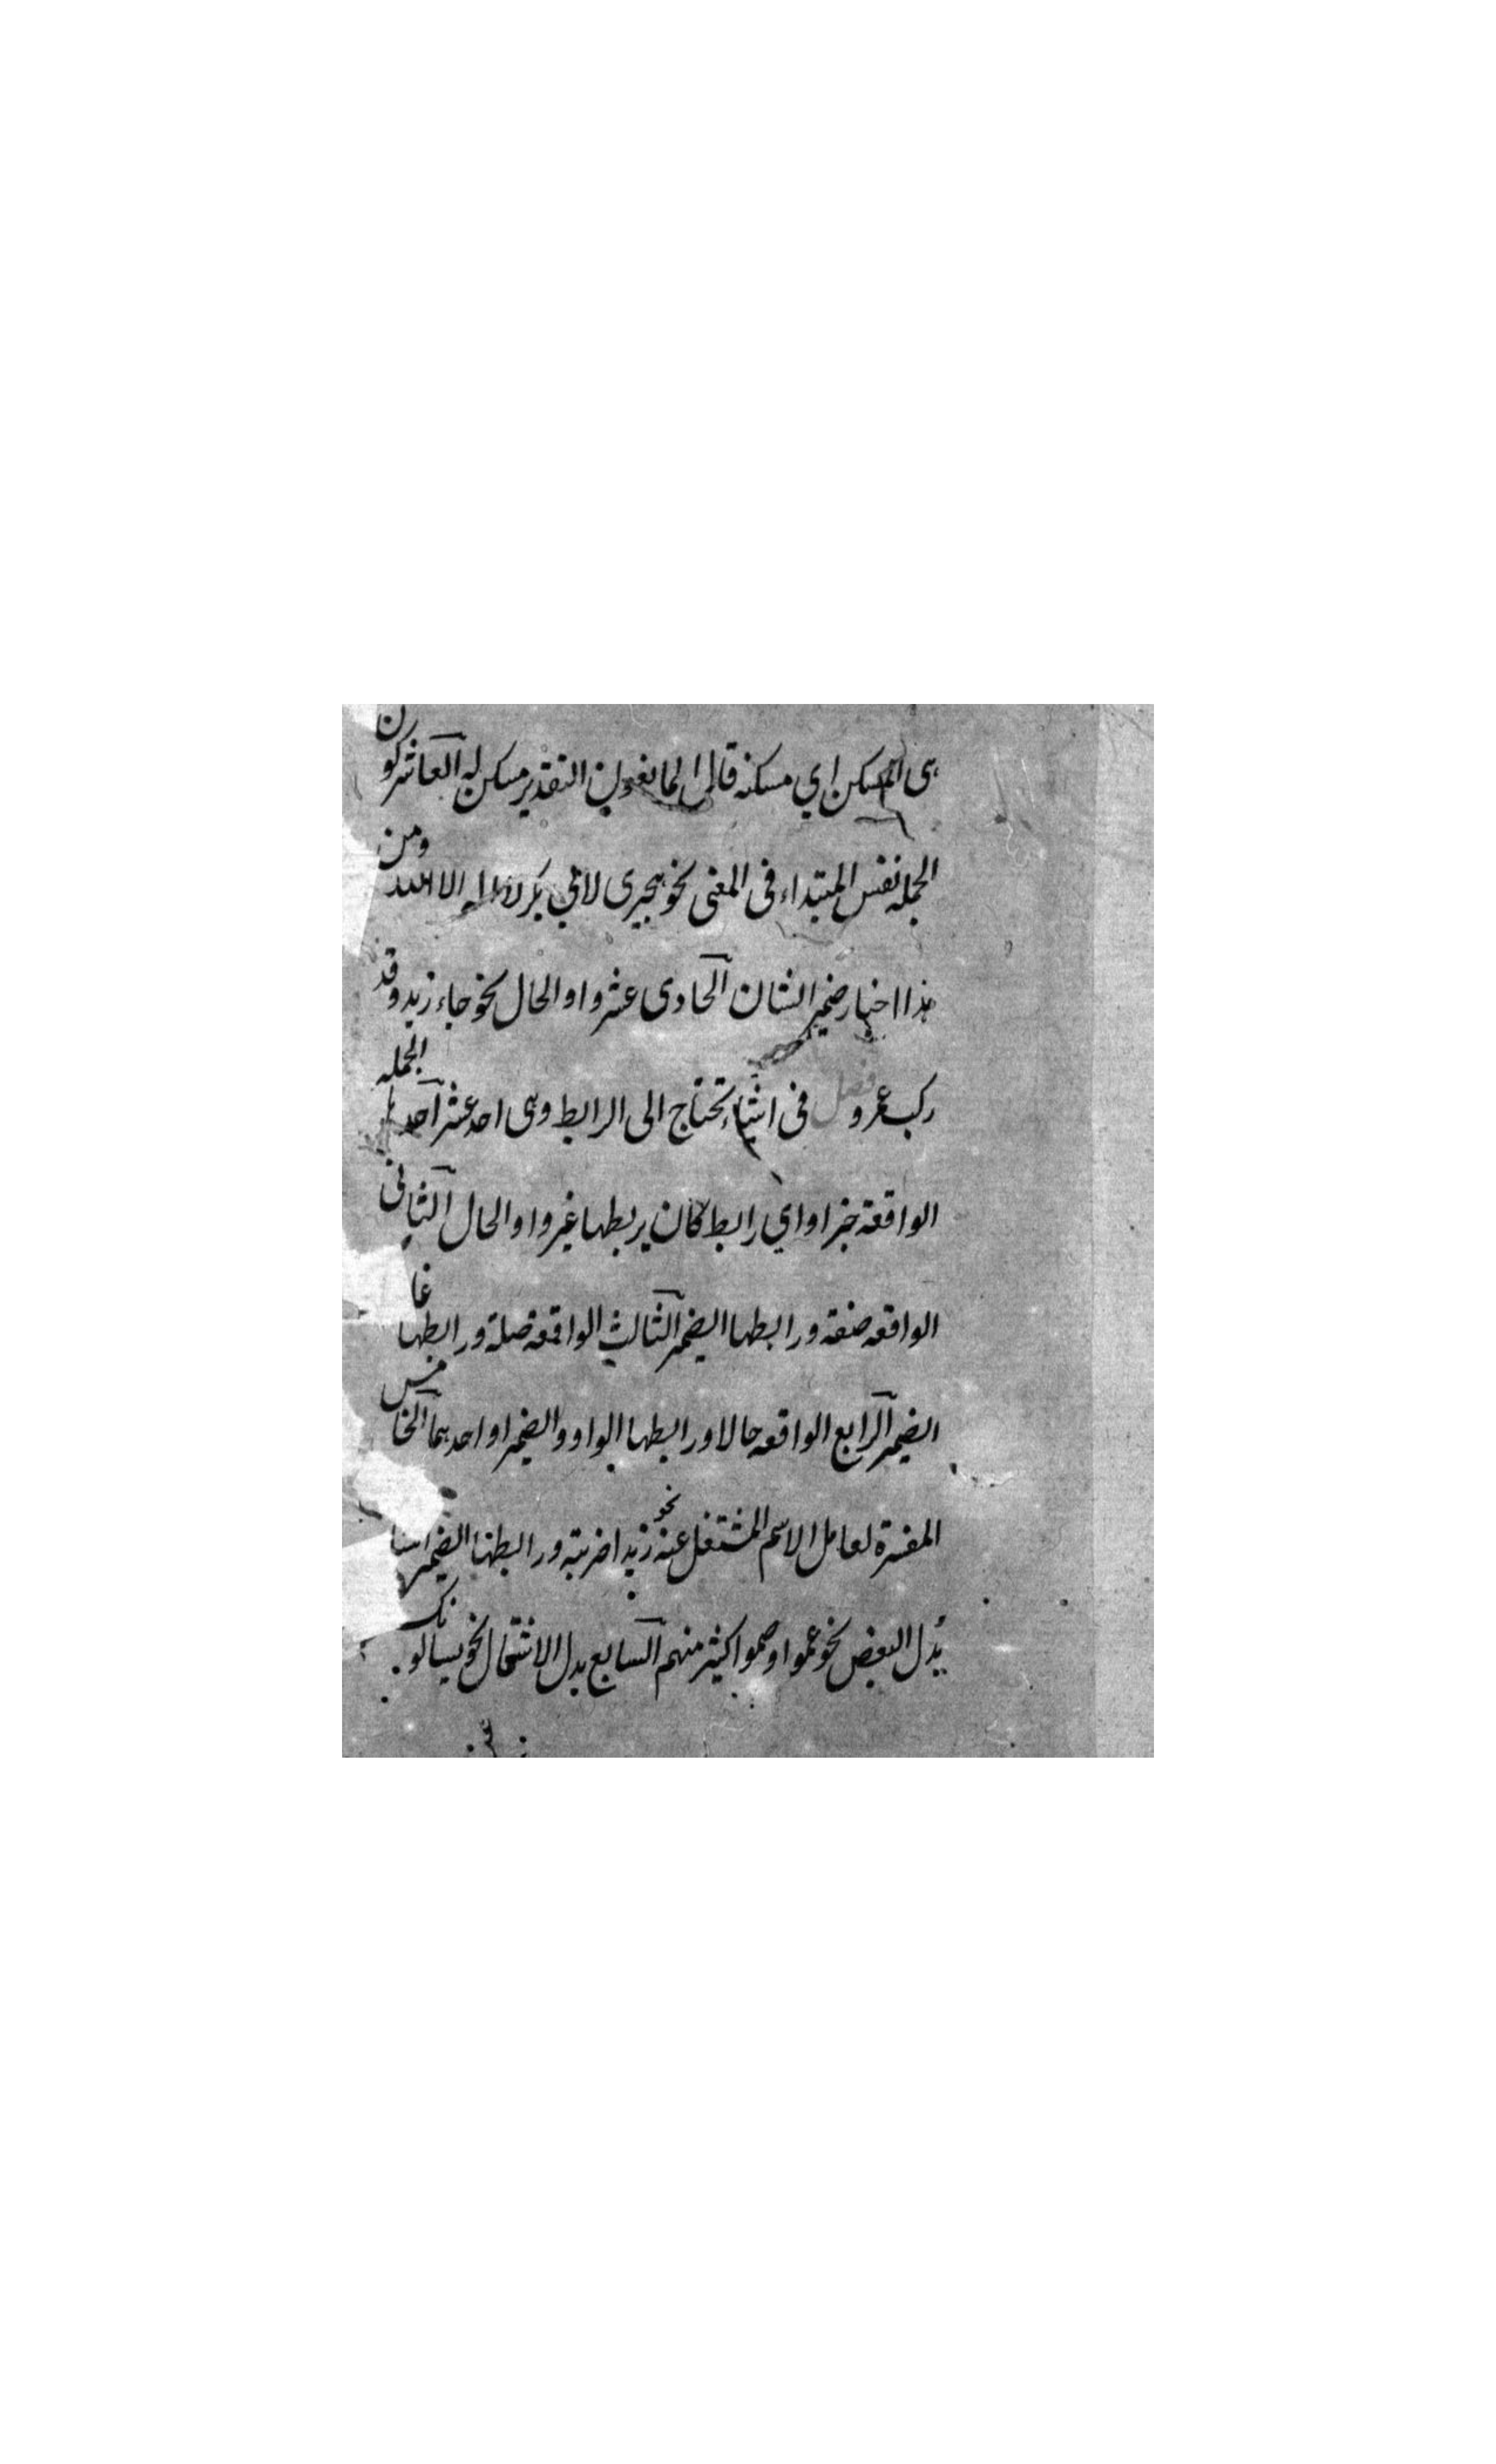 هى المسكن اي مسكنه قال المانعون التقدير مسكن له العاشر كون
الجمله نفس المبتداء فى المعنى نحو هجيرى لابي بكر لا اله الا الله ومن
هذا اخبار ضمير الشان الحادى عشر واو الحال نحو جاء زيد وقد
ركب عمرو فصل فى اشياء تحتاج الى الرابط وهى احد عشر احدها الجمله
الواقعة خبرا واي رابط كان يربطها غير واو الحال الثانى
الواقعه صفة ورابطها الضمير الثالث الواقعة صلة ورابطها غا
الضمير الرابع الواقعه حالا ورابطها الواو والضمير او احدهما الخامس
المفسرة لعامل الاسم المشتغل عنه نحو زيدا ضربته ورابطها الضمير
بدل البعض نحو عموا وصموا كثير منهم السابع بدل الاشتمال نحو يسالونك